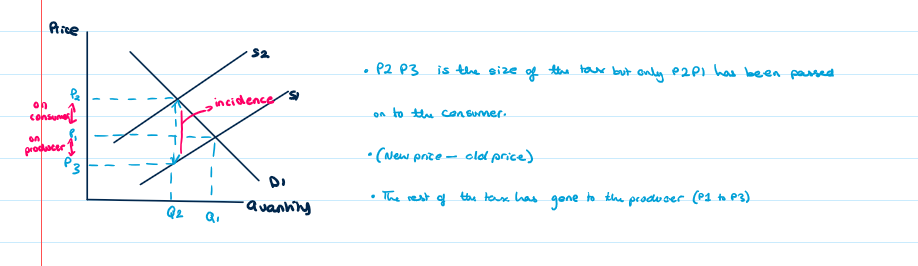 Price
S2
P2
on consumer
incidence
S1
P1
on producer
P3
D1
Quantity
Q2 Q1
• P2 P3 is the size of the tax but only P2P1 has been passed
on to the consumer.
• (New price – old price)
• The rest of the tax has gone to the producer (P1 to P3)